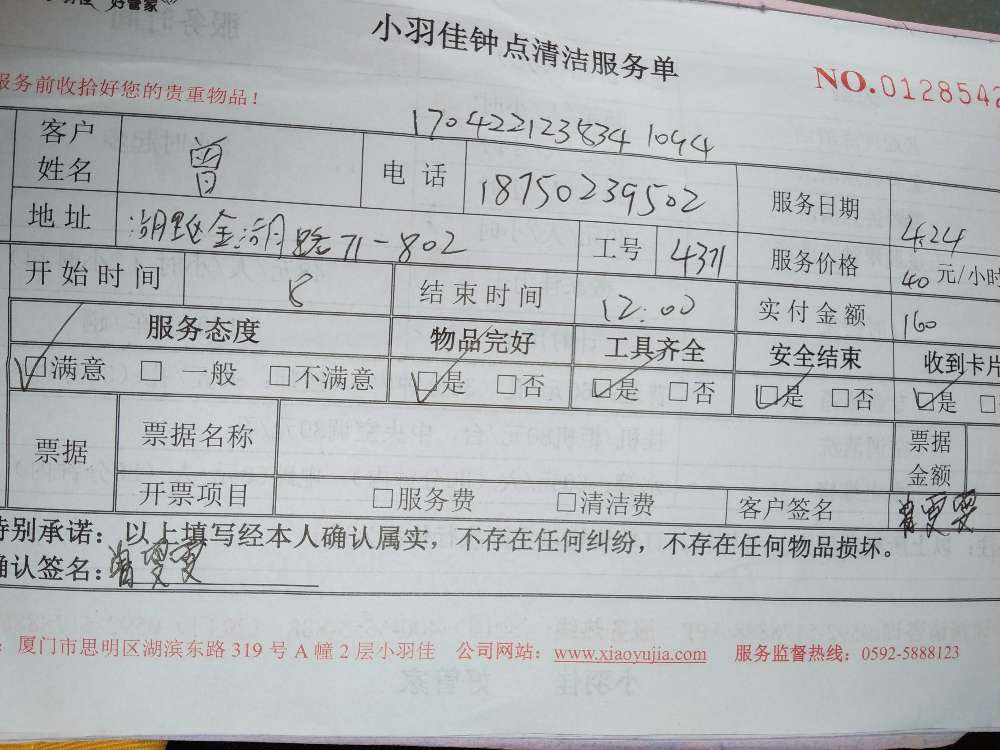 小羽佳 好管家
小羽佳钟点清洁服务单
NO.0128542
服务前收拾好您的贵重物品！
1704221238341094
客户姓名 曾 电话 18750239502 服务日期 4.24
地址 湖里区金湖路71-802 工号 4371 服务价格 40元/小时
开始时间 8 结束时间 12:00 实付金额 160
服务态度 物品完好 工具齐全 安全结束 收到卡片
□满意 □一般 □不满意 □是 □否 □是 □否 □是 □否 □是 □
票据 票据名称 票据金额
开票项目 □服务费 □清洁费 客户签名 曾雯雯
特别承诺：以上填写经本人确认属实，不存在任何纠纷，不存在任何物品损坏。
确认签名：曾雯雯
：厦门市思明区湖滨东路 319 号 A 幢 2 层小羽佳 公司网站：www.xiaoyujia.com 服务监督热线：0592-5888123